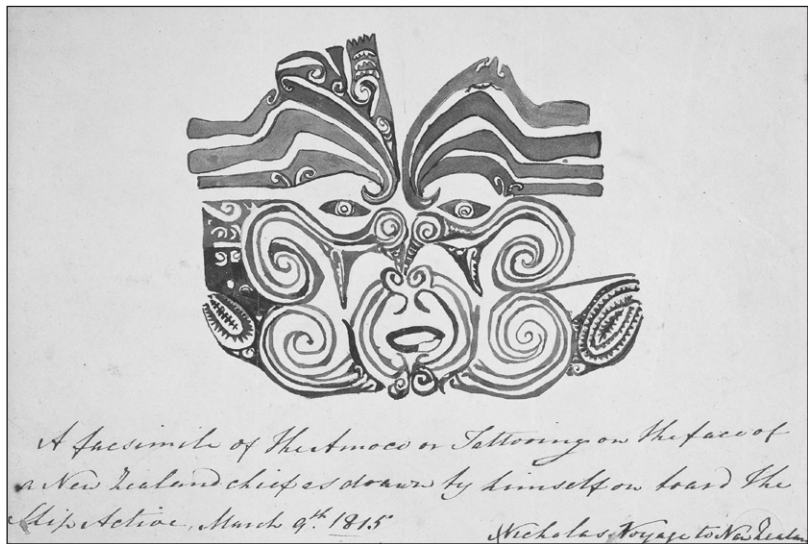 A facsimile of the Amoco or Tattooing on the face of
a New Zealand chief as drawn by himself on board the
Ship Active, March 9th. 1815
Nicholas Voyage to New Zealan